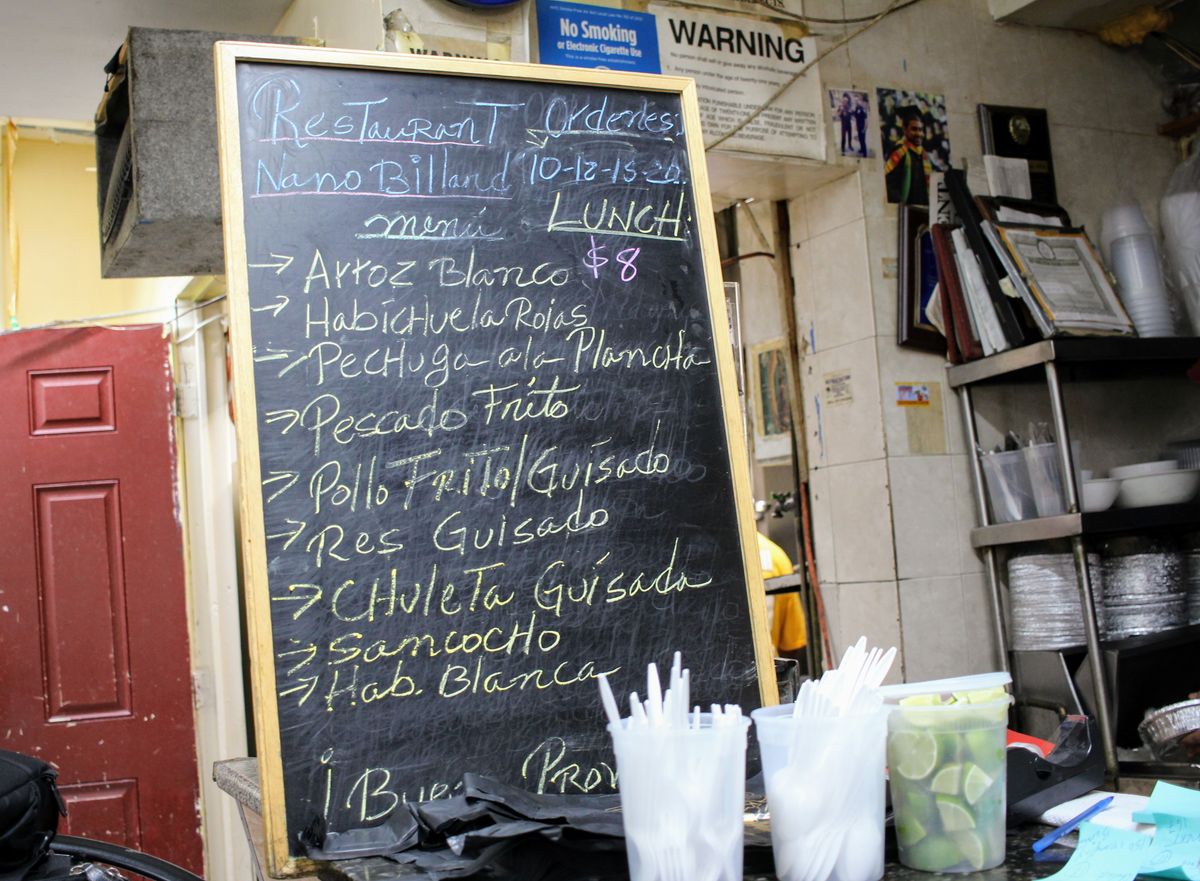 No Smoking
or Electronic Cigarette Use
WARNING
WARNING
Restaurant Ordenes:
Nano Billard 10-12-15-20.
menú LUNCH:
→ Arroz Blanco $8
→ Habichuela Rojas
→ Pechuga a la Plancha
→ Pescado Frito
→ Pollo Frito/Guisado
→ Res Guisado
→ Chuleta Guisada
→ Sancocho
→ Hab. Blanca
¡Bue Prov